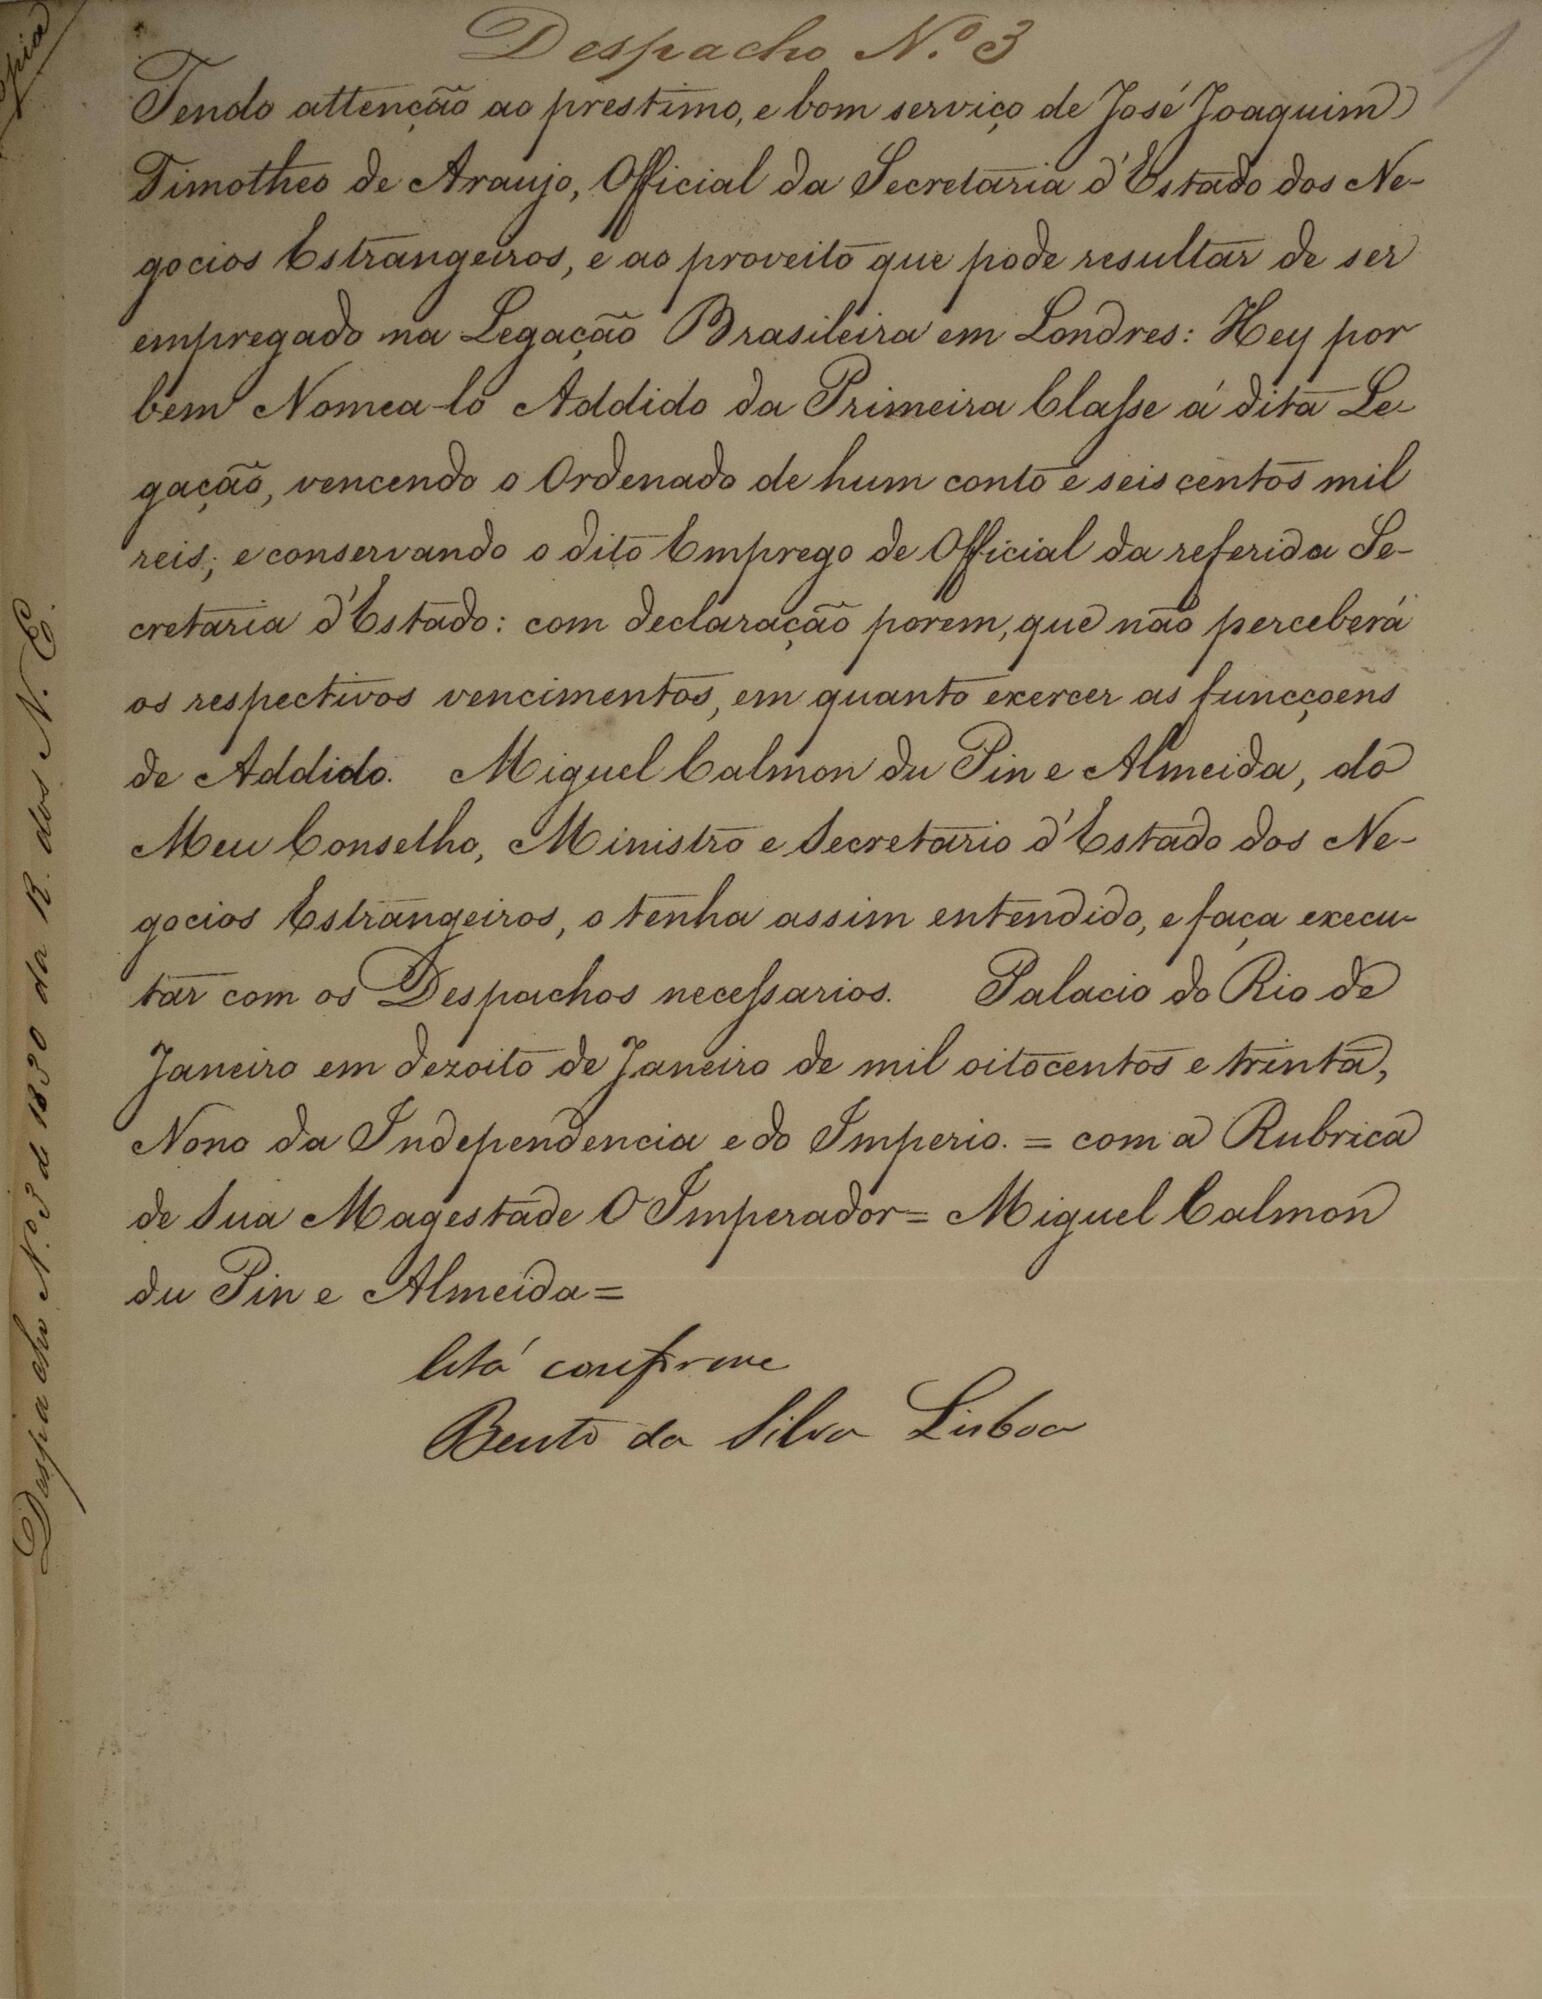 Despacho N.º 3
1
Tendo attenção ao prestimo, e bom serviço de José Joaquim
Timotheo de Araujo, Official da Secretaria d'Estado dos Ne-
gocios Estrangeiros, e ao proveito que pode resultar de ser
empregado na Legação Brasileira em Londres: Hey por
bem Nomea-lo Addido da Primeira Classe á dita Le-
gação, vencendo o Ordenado de hum conto e seis centos mil
reis; e conservando o dito Emprego de Official da referida Se-
cretaria d'Estado: com declaração porem, que não perceberá
os respectivos vencimentos, em quanto exercer as funcçoens
de Addido. Miguel Calmon du Pin e Almeida, do
Meu Conselho, Ministro e Secretario d'Estado dos Ne-
gocios Estrangeiros, o tenha assim entendido, e faça execu-
tar com os Despachos necessarios. Palacio do Rio de
Janeiro em dezoito de Janeiro de mil oitocentos e trinta,
Nono da Independencia e do Imperio. = com a Rubrica
de Sua Magestade O Imperador = Miguel Calmon
du Pin e Almeida =
Está conforme
Bento da Silva Lisboa
Despacho N.º 3 de 1830 da R. dos N. E.